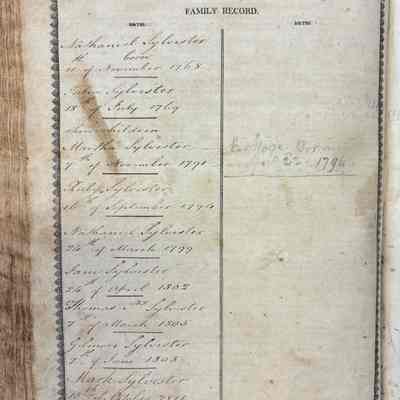 FAMILY RECORD.
BIRTHS.
BIRTHS.
Nathaniel Sylvester
born
11th of November 1768
Sylvester
18th of July 1769
their children
Martha Sylvester
7th of November 1791
Ruby Sylvester
16th of September 1794
Nathaniel Sylvester
24th of March 1799
Jane Sylvester
24th of April 1802
Thomas Sylvester
7th of March 1805
Gilmor Sylvester
7th of June 1808
Mark Sylvester
of
Born
22 1794